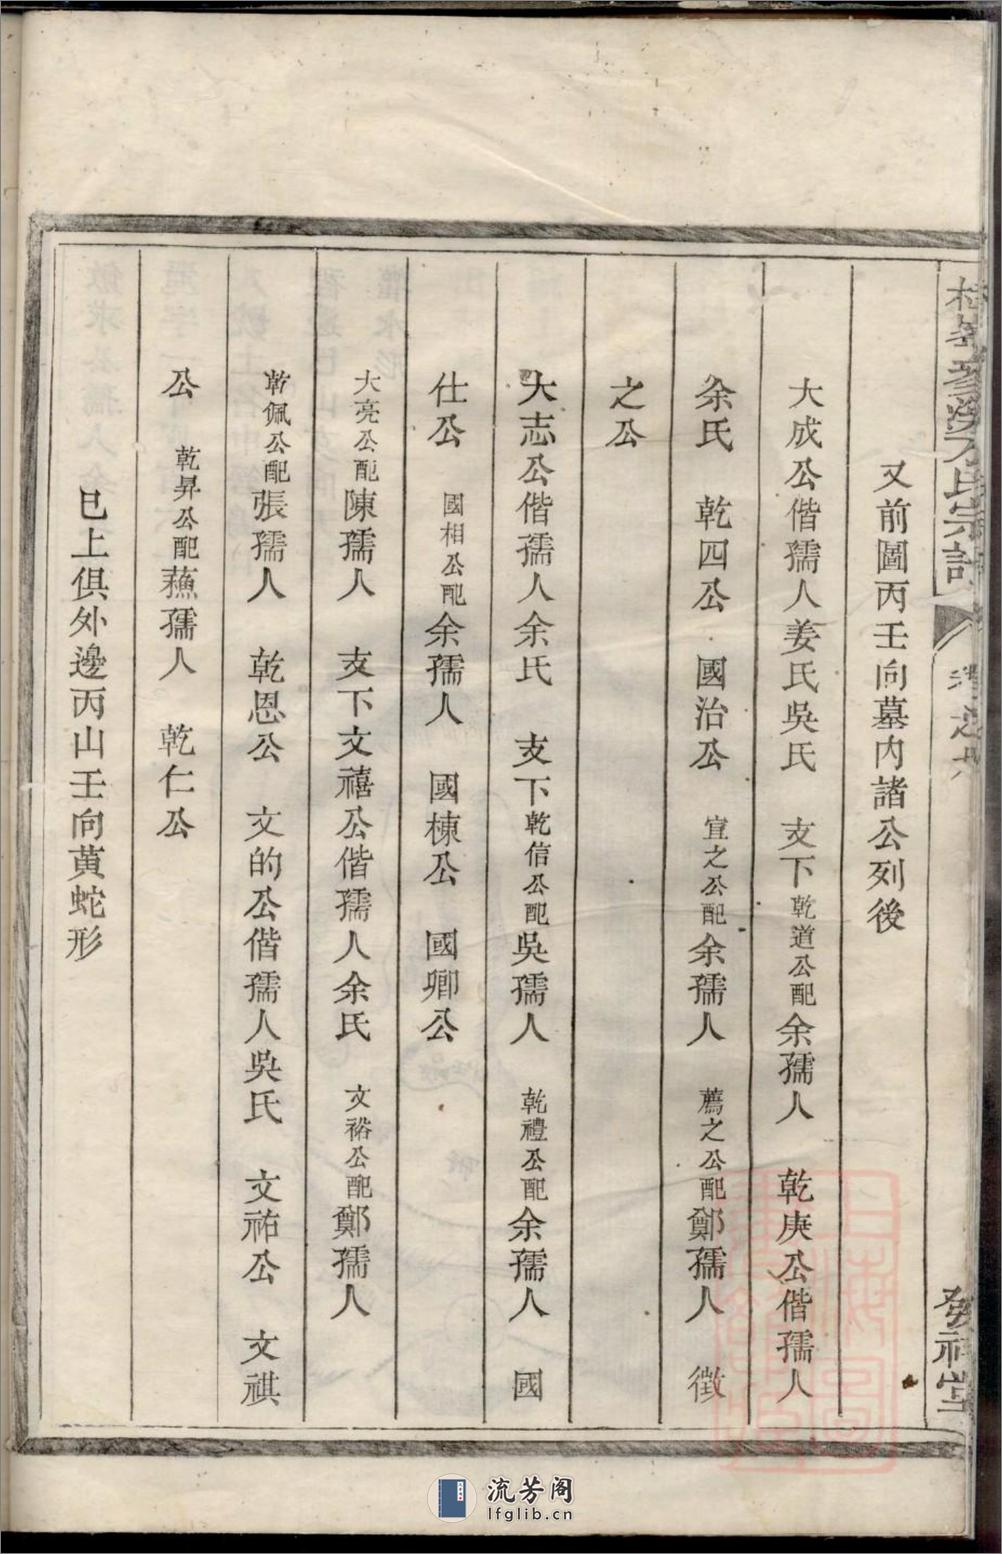 又前圖丙壬向墓內諸公列後
大成公偕孺人姜氏吳氏 支下乾道公配余孺人 乾庚公偕孺人
余氏 乾四公 國治公 宣之公配余孺人 薦之公配鄭孺人 徴
之公
大志公偕孺人余氏 支下乾信公配吳孺人 乾禮公配余孺人 國
仕公 國相公配余孺人 國棟公 國卿公
大亮公配陳孺人 支下文禧公偕孺人余氏 文裕公配鄭孺人
乾佩公配張孺人 乾恩公 文的公偕孺人吳氏 文祐公 文祺
公 乾昇公配蘓孺人 乾仁公
巳上俱外邊丙山壬向黄蛇形
氏宗譜
發祥堂
流芳阁
lfglib.cn